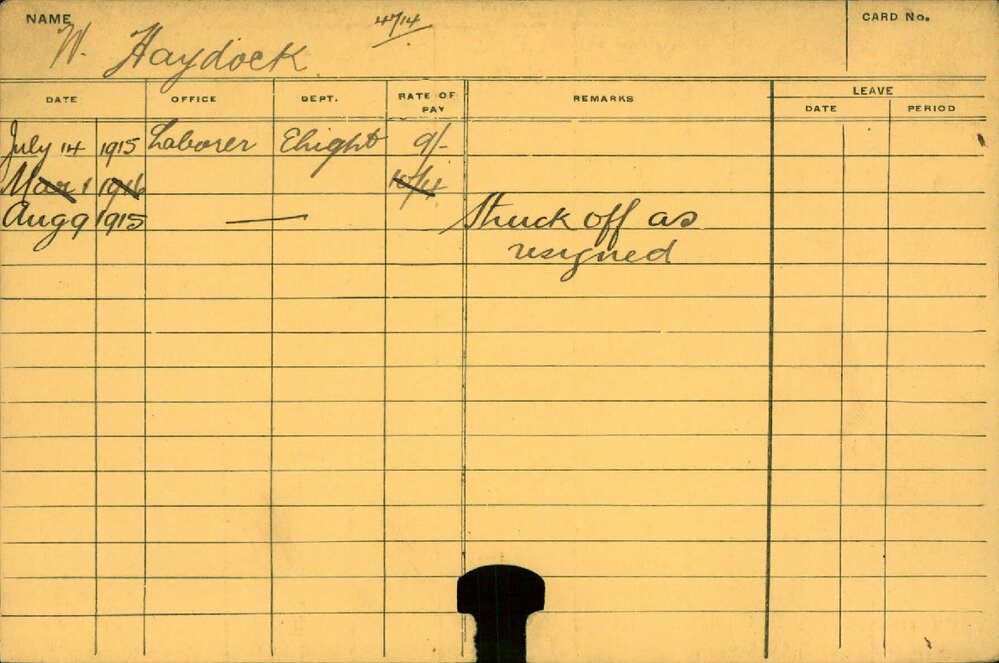 NAME W. Haydock 47/14 CARD No.
DATE OFFICE DEPT. RATE OF PAY REMARKS LEAVE
DATE PERIOD
July 14 1915 Laborer Elight 9/-
Mar 1 1916 10/4
Aug 9 1915 — Struck off as
resigned